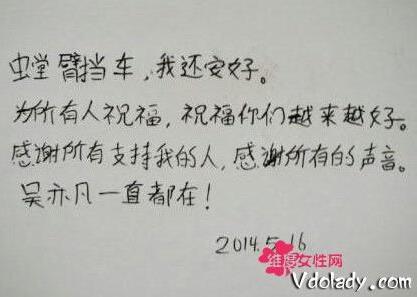 螳臂挡车，我还安好。
为所有人祝福，祝福你们越来越好。
感谢所有支持我的人，感谢所有的声音。
吴亦凡一直都在！
2014.5.16
维度女性网
Vdolady.com